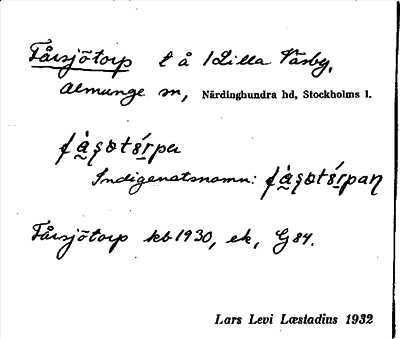 Fårsjötorp t å 1 Lilla Väsby,
Almunge sn, Närdinghundra hd, Stockholms l.
Indigenatsnamn:
Fårsjötorp kb 1930, ek, G 84.
Lars Levi Læstadius 1932